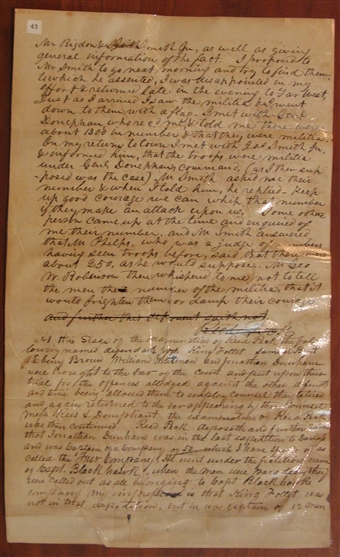 43
Mr Rigdon & Smith Jr, as well as giving
general information of the fact. I proposed to
Mr Smith to go next morning and try to find them
to which he assented, I was disappointed in my
effort & returned late in the evening to Far West,
Just as I arrived I saw the militia & I went
down to them with a flag. I met with Genl
Donephan who recd me & told me there were
about 1300 in number & that they were militia.
On my return to town I met with Jos Smith Jr,
& informed him, that the troops were militia
under Genl Donephan command, (as I then sup
posed was the case) Mr Smith asked me their
number & when I told him, he replied keep
up good courage we can whip that number
if they make an attack upon us. Some other
person came up at the time and inquired of
me their number, and Mr Smith answered
that Mr Phelps, who was a judge of numbers
having seen troops before, said that they were
about 250, as he would suppose. Mr Geo
W Robinson then whispered to me, not to tell
the men the number of the militia, that it
would frighten them, or damp their courage
and further this deponent saith not
At this stage of the examination of Reed Peck the fol
lowing named defendants King Follett
Ebing Brown William Whitman and Jonathan Dunham
were brought to the bar of the Court and put upon their
trial for the offences alledged against the other defendants
and time being allowed them to employ counsel they retired
and again returned to the bar appearing by their Counsel
Messrs Rees & Doniphan. the examination of Reed Peck
was then continued. Reed Peck deposeth and further saith
that Jonathan Dunham was in the last expedition to Daviess
and was Captain of a Company of which I have spoke of as
called the Fur Company. He went under the fictitious name
of Capt. Black hawk, when the men were paraded they
were called out as all belonging to Capt Black hawks
company my impression is that King Follet was
not in that expedition, but was captain of 12 men